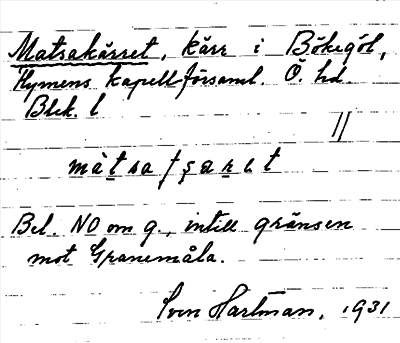 Matsakärret, kärr i Bökegöl,
Hymens kapellförsaml. Ö. hd.
Blek. l
//
Bel. NO om g., intill gränsen
mot Granemåla.
Sven Hartman, 1931